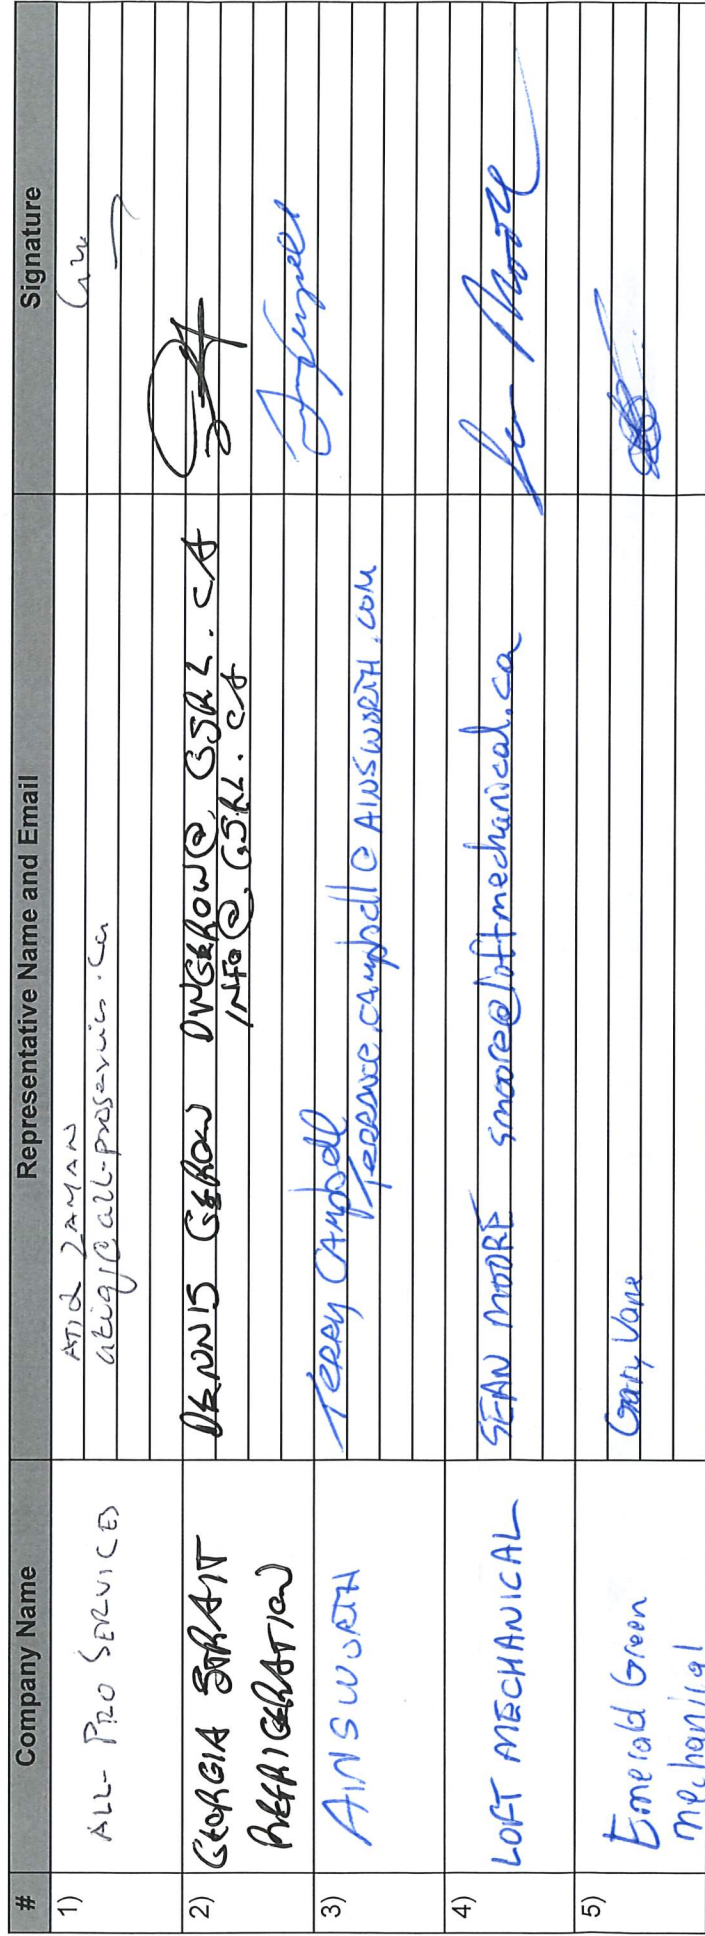 # Company Name Representative Name and Email Signature
1) ALL-PRO SERVICES ATIQ ZAMAN
atiq@all-proservices.ca
2) GEORGIA STRAIT DENNIS GEROW DWGEROW@GSRL.CA
REFRIGERATION INFO@GSRL.CA
3) AINSWORTH TERRY CAMPbell
TERRANCE.CAMPbell@AINSWORTH.COM
4) LOFT MECHANICAL SEAN MOORE smoore@loftmechanical.ca
5) Emerald Green Gary Vane
mechanical